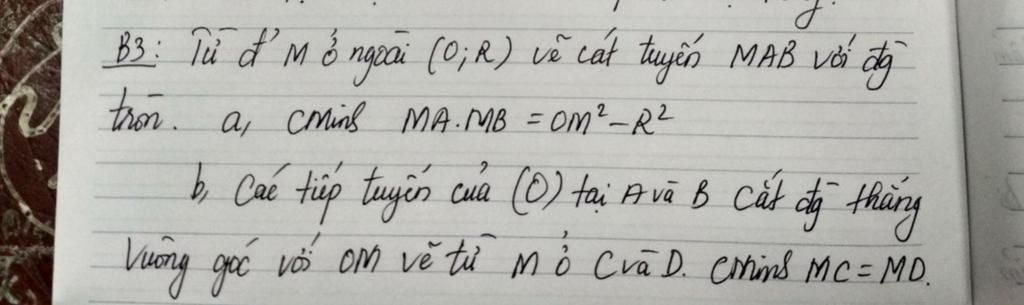 B3: Từ đ' M ở ngoài (O;R) vẽ cát tuyến MAB với đg
tròn. a, CMinh MA.MB = OM² - R²
b, Các tiếp tuyến của (O) tại A và B cắt đg thẳng
Vuông góc với OM vẽ từ M ở C và D. CMinh MC = MD.